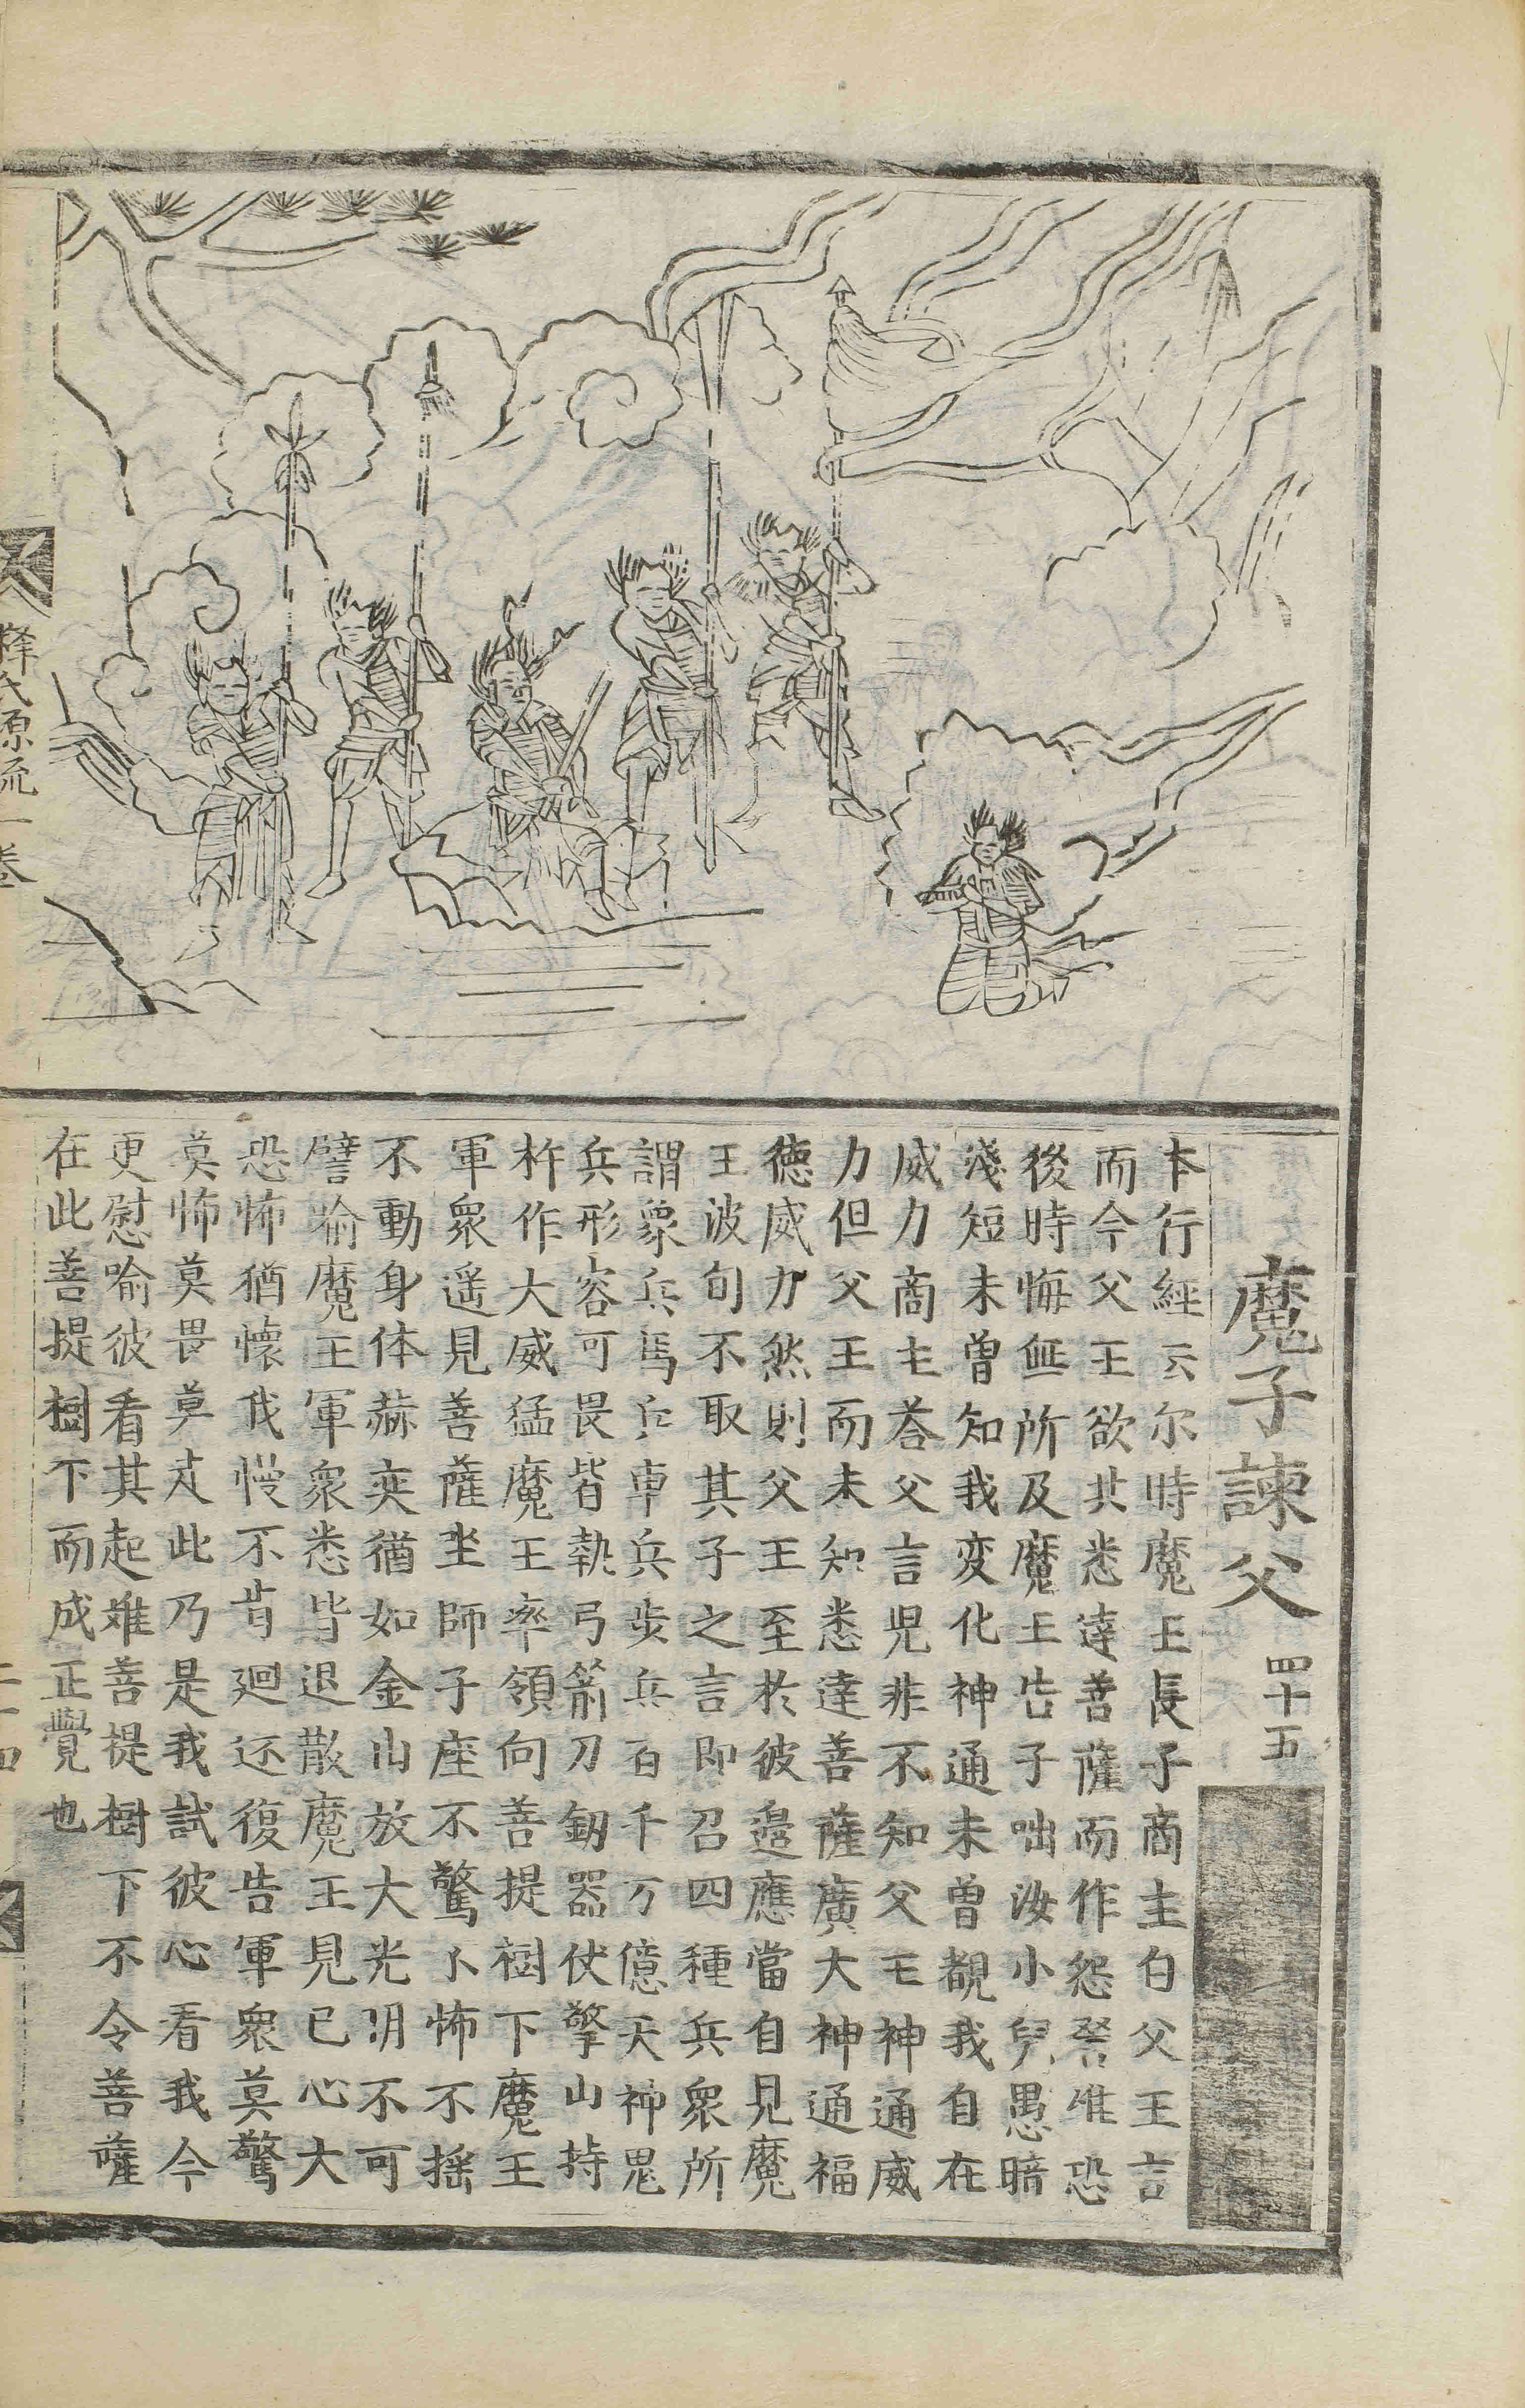 魔子諫父 四十五
本行經云尔時魔王長子商主白父王言
而今父王欲共悉達菩薩而作怨讐唯恐
後時悔無所及魔王告子咄汝小兒愚暗
淺短未曾知我变化神通未曾覩我自在
威力商主荅父言児非不知父王神通威
力但父王而未知悉達菩薩廣大神通福
德威力然則父王至於彼邉應當自見魔
王波旬不取其子之言即召四種兵衆所
謂象兵馬兵車兵步兵百千万億天神鬼
兵形容可畏皆執弓箭刀釰器仗擎山持
杵作大威猛魔王率領向菩提樹下魔王
軍衆遥見菩薩坐師子座不驚不怖不揺
不動身体赫奕猶如金山放大光明不可
譬喻魔王軍衆悉皆退散魔王見已心大
恐怖猶懷我慢不肯廻还復告軍衆莫驚
莫怖莫畏莫走此乃是我試彼心看我今
更慰喻彼看其起難菩提樹下不令菩薩
在此菩提樹下而成正覺也
釋氏源流一卷